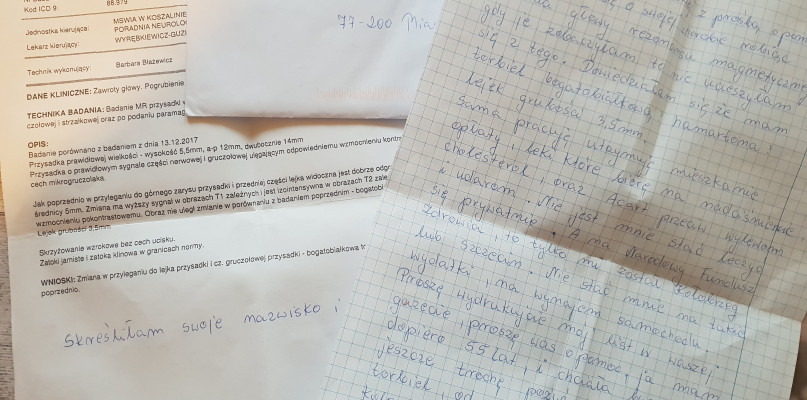 Kod ICD 9: 88.979
Jednostka kierująca: MSWIA W KOSZALINIE
PORADNIA NEUROLO
Lekarz kierujący: WYRĘBKIEWICZ-GUZI
Technik wykonujący: Barbara Błażewicz
DANE KLINICZNE: Zawroty głowy. Pogrubienie
TECHNIKA BADANIA: Badanie MR przysadki
czołowej i strzałkowej oraz po podaniu paramag
OPIS:
Badanie porównano z badaniem z dnia 13.12.2017
Przysadka prawidłowej wielkości - wysokość 5,5mm, a-p 12mm, dwubocznie 14mm
Przysadka o prawidłowym sygnale części nerwowej i gruczołowej ulegającym odpowiedniemu wzmocnieniu kontra
cech mikrogruczolaka.
Jak poprzednio w przyleganiu do górnego zarysu przysadki i przedniej części lejka widoczna jest dobrze odgr
średnicy 5mm. Zmiana ma wyższy sygnał w obrazach T1 zależnych i jest izointensywna w obrazach T2 zale
wzmocnieniu pokontrastowemu. Obraz nie uległ zmianie w porównaniu z badaniem poprzednim - bogatobi
Lejek grubości 3,5mm
Skrzyżowanie wzrokowe bez cech ucisku.
Zatoki jamiste i zatoka klinowa w granicach normy.
WNIOSKI: Zmiana w przyleganiu do lejka przysadki i cz. gruczołowej przysadki - bogatobiałkowa
poprzednio.
Skreśliłam swoje nazwisko i
77-200 Mia
z prośbą o pom
o swojej chorobie
głowy rezonansu magnetyczne
gdy je zobaczyłam, to nie ucieszyłam
się z tego. Dowiedziałam się że mam
torbiel bogatobiałkową, hamartoma,
lejek grubości 3,5mm
Sama pracuję, utrzymuję mieszkanie
opłaty, i leki które biorę na nadciśnienie
cholesterol oraz Acart przed wylewam
i udarem. Nie jest mnie stać leczyć
się prywatnie. A na Narodowy Fundusz
Zdrowia, to tylko mi został Kołobrzeg
lub Szczecin. Nie stać mnie na takie
wydatki, na wynajem samochodu.
Proszę wydrukujcie mój list w waszej
gazecie, proszę was o pomoc, ja mam
dopiero 55 lat, i chciała
jeszcze trochę
torbiel, od